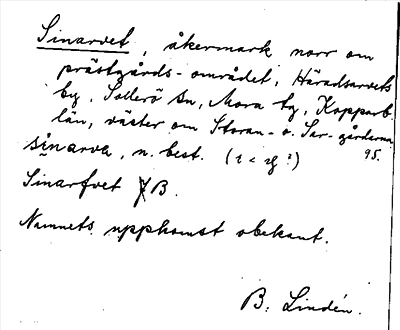 Sinarvet, åkermark norr om
prästgårds-området, Häradsarvets
by, Sollerö sn, Mora tg, Kopparb.
län, väster om Storan- o. Sar-gårdarna.
95.
sinarva, n. best. (i < ?)
Sinarfvet B.
Namnets upphomst obekant.
B. Lindén.